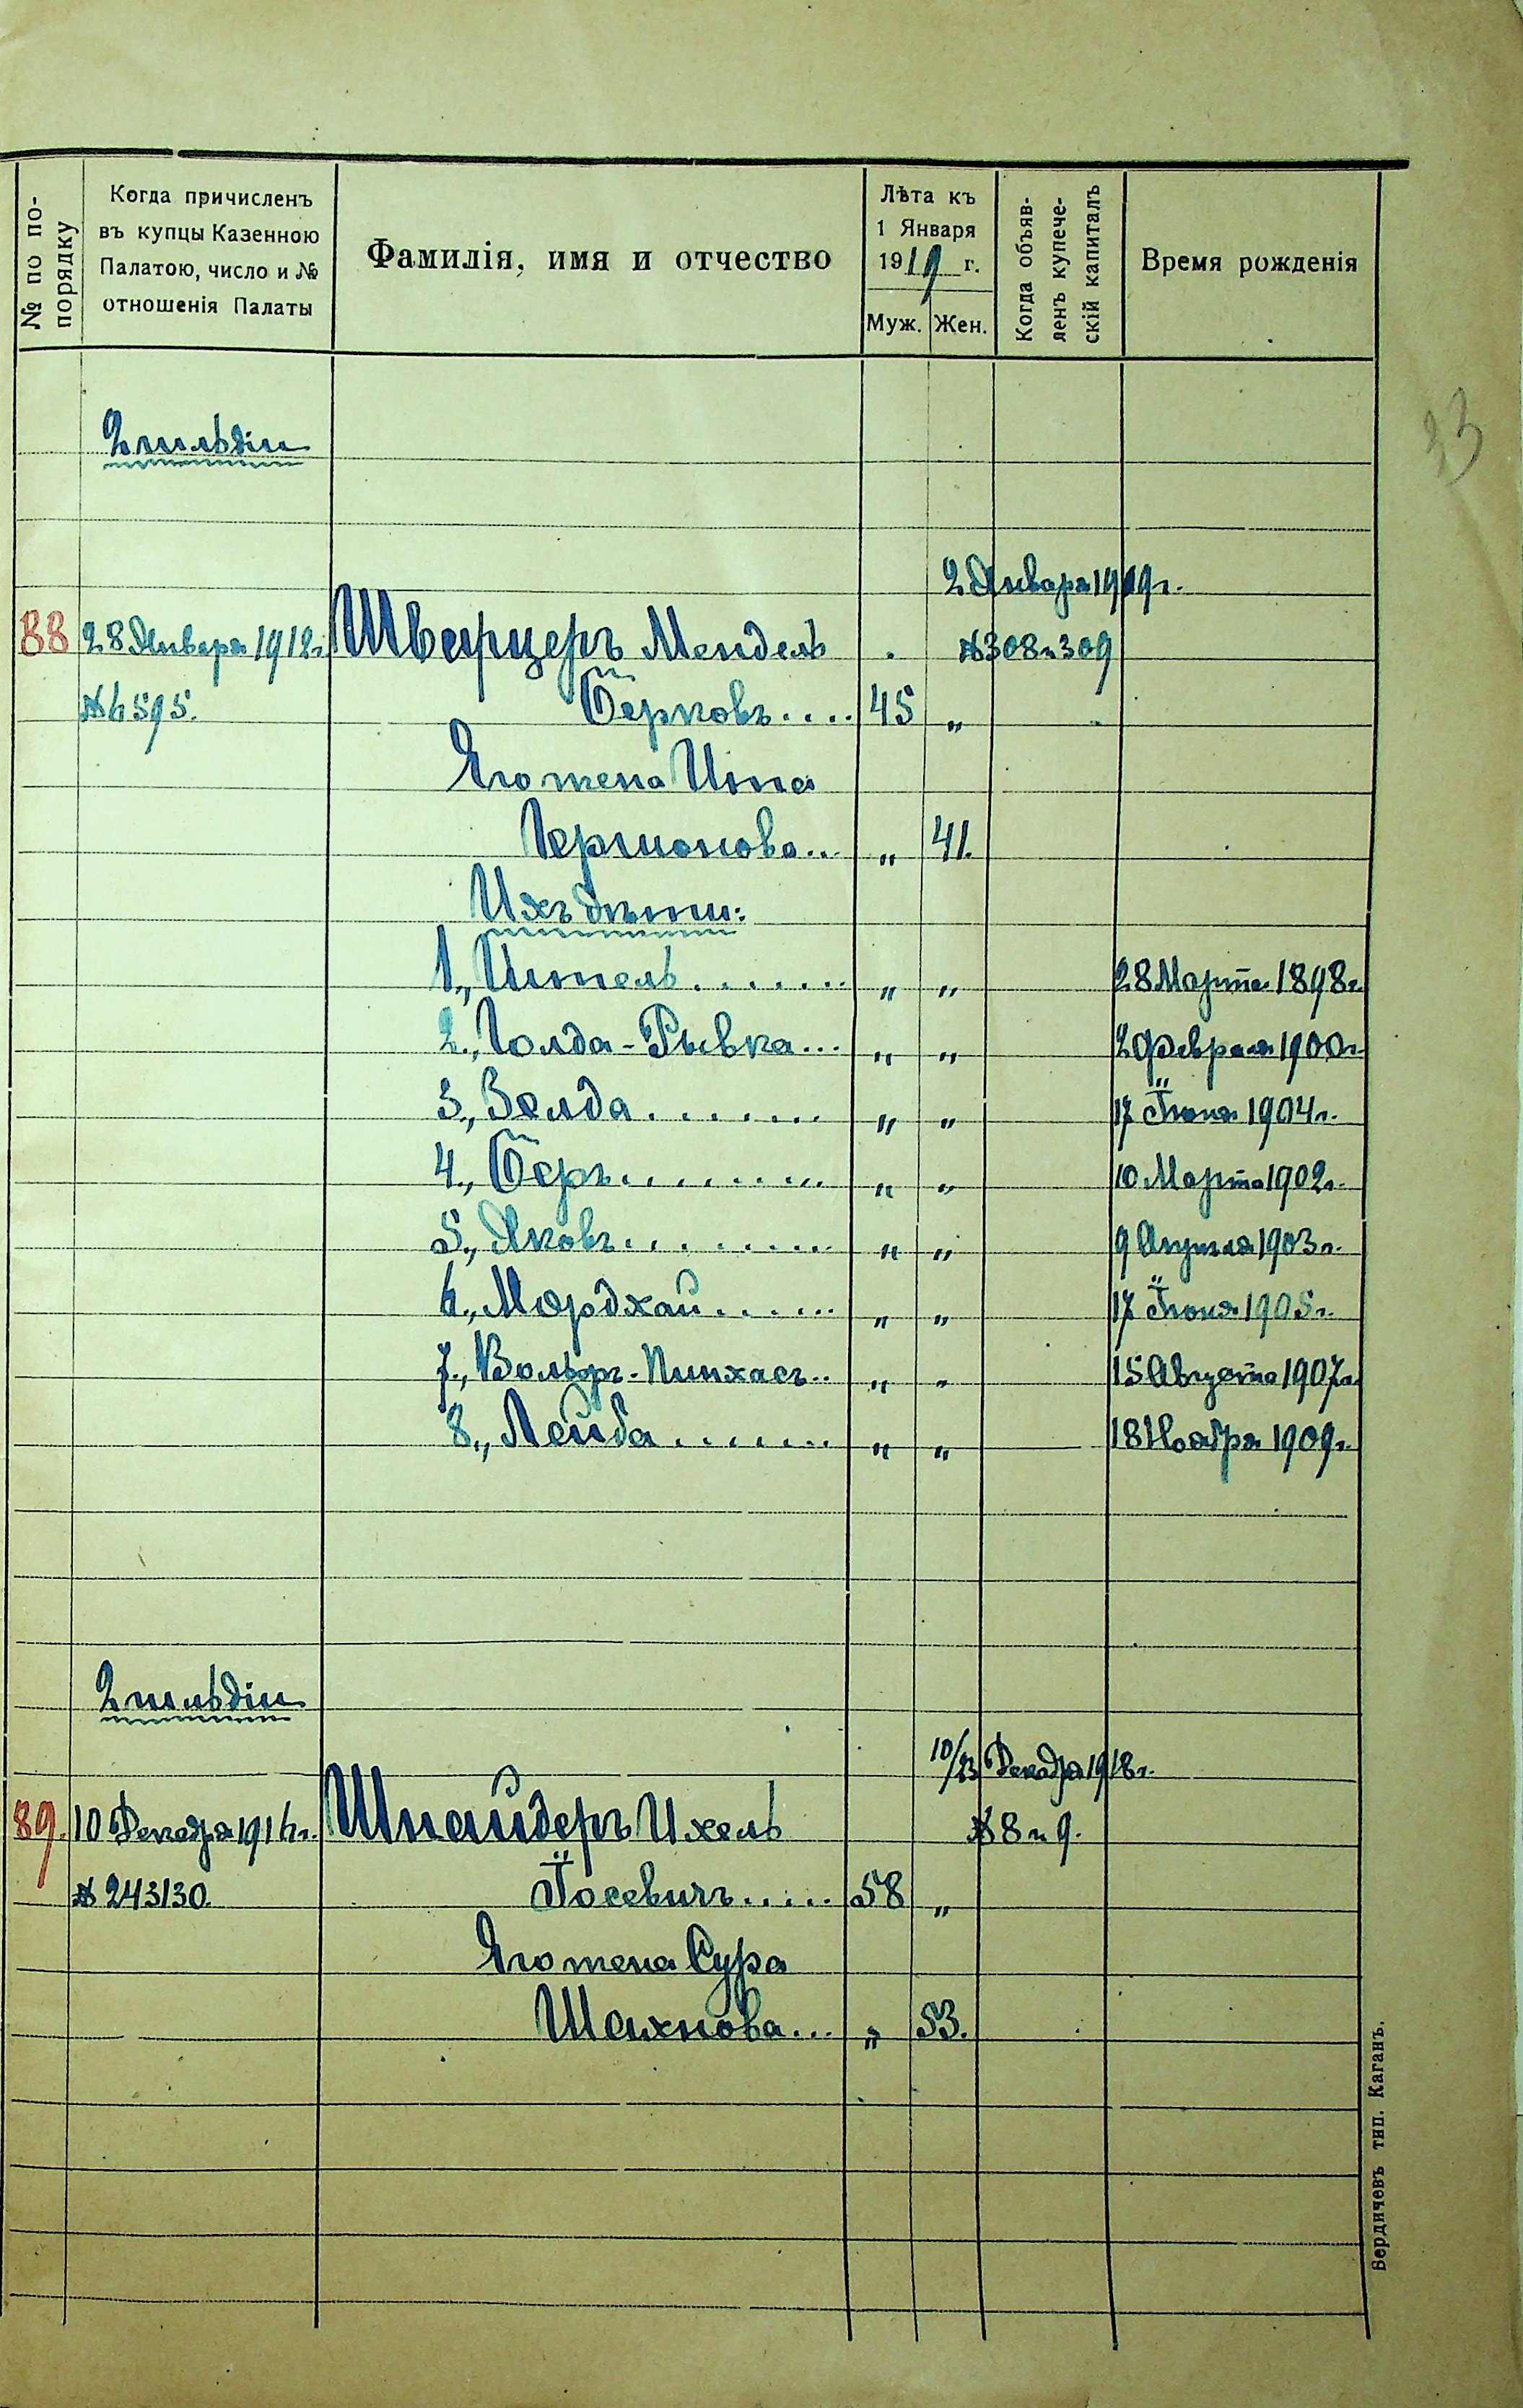 № по по-
порядку
Когда причисленъ
въ купцы Казенною
Палатою, число и №
отношенія Палаты
Фамилія, имя и отчество
Лѣта къ
1 Января
1919 г.
Муж. Жен.
Когда объяв-
ленъ купече-
скій капиталъ
Время рожденія
23
2 гильдіи
2 Января 1919 г.
88 28 Января 1912 г. Шварцеръ Мендель № 308 и 309
№ 6595. Берковъ.... 45 „
Его жена Ита
Германова... „ 41.
Ихъ дѣти:
1., Ител​ь....... „ „ 28 Марта 1898 г.
2., Голда-Рывка... „ „ 2 Февраля 1900 г.
3., Зелда........ „ „ 17 Іюня 1904 г.
4., Беръ......... „ „ 10 Марта 1902 г.
5., Яковъ......... „ „ 9 Апрѣля 1903 г.
6., Мордхай...... „ „ 17 Іюня 1905 г.
7., Вольфъ-Пинхасъ.. „ „ 15 Августа 1907 г.
8., Лейба....... „ „ 18 Ноября 1909 г.
2 гильдіи
10/23 Декабря 1918 г.
89. 10 Декабря 1916 г. Шнайдеръ Ихель № 8 и 9.
№ 243130. Іосевичъ..... 58 „
Его жена Сура
Шаихнова... „ 53.
Бердичевъ тип. Каганъ.